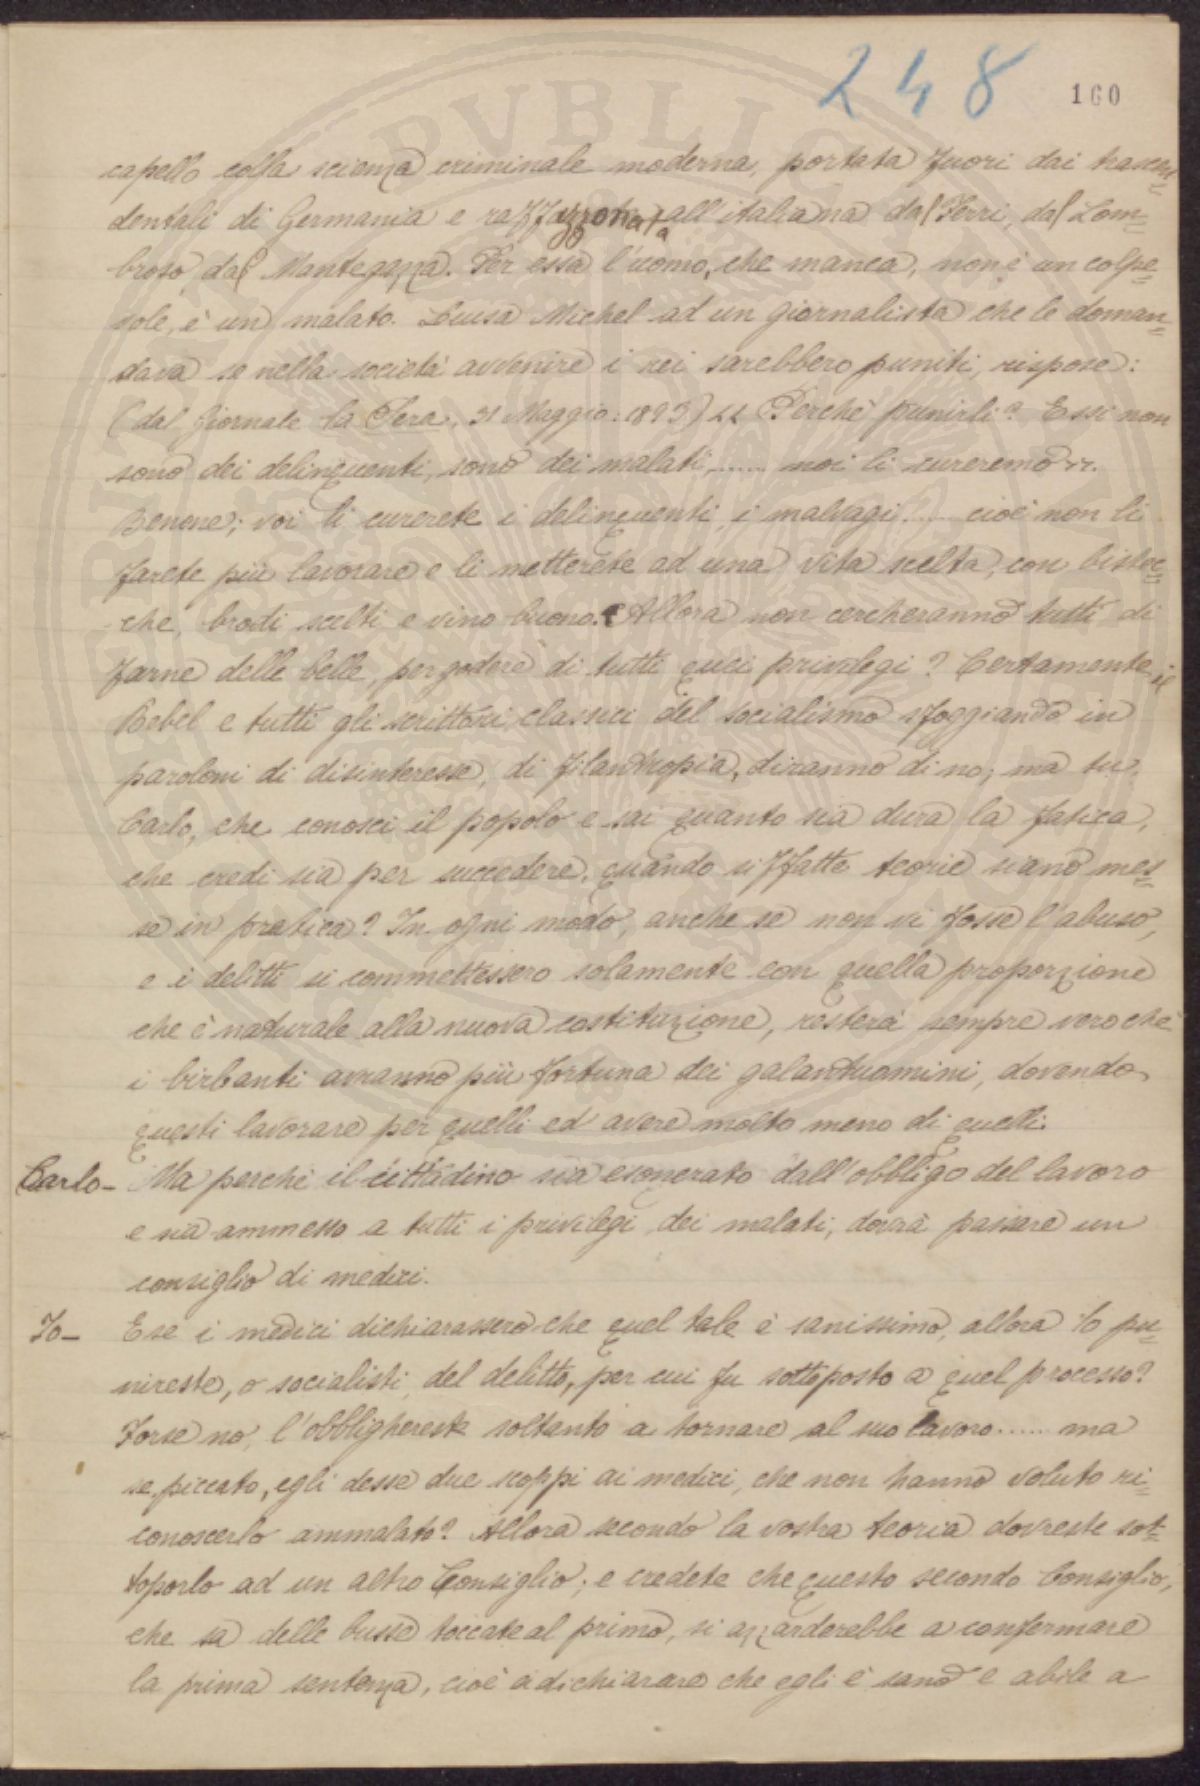 248 160
capello colla scienza criminale moderna, portata fuori dai trascen=
dentali di Germania e raffazzonata all'italiana dal Ferri, dal Lom=
broso dal Mantegazza. Per essa l'uomo, che manca, non è un colpe=
vole, è un malato. Luisa Michel ad un giornalista che le doman=
dava se nella società avvenire i rei sarebbero puniti, rispose:
(dal Giornale la Sera, 31 Maggio: 1893) « Perchè punirli? Essi non
sono dei delinquenti, sono dei malati,...... noi li cureremo ».
Benone; voi li curerete i delinquenti i malvagi!.... cioè non li
farete più lavorare e li metterete ad una vita scelta, con bistec=
che, brodi scelti e vino buono. Allora non cercheranno tutti di
farne delle belle, per godere di tutti quei privilegi? Certamente il
Bebel e tutti gli scrittori classici del socialismo sfoggiando in
paroloni di disinteresse, di filantropia, diranno di no; ma tu,
Carlo, che conosci il popolo e sai quanto sia dura la fatica,
che credi sia per succedere, quando siffatte teorie siano mes=
se in pratica? In ogni modo, anche se non vi fosse l'abuso,
e i delitti si commettessero solamente con quella proporzione
che è naturale alla nuova costituzione, resterà sempre vero che
i birbanti avranno più fortuna dei galantuomini, dovendo
questi lavorare per quelli ed avere molto meno di quelli.
Carlo - Ma perchè il cittadino sia esonerato dall'obbligo del lavoro
e sia ammesso a tutti i privilegi dei malati, dovrà passare un
consiglio di medici.
Io - E se i medici dichiarassero che quel tale è sanissimo, allora lo pu=
nireste, o socialisti, del delitto, per cui fu sottoposto a quel processo?
Forse no, l'obblighereste soltanto a tornare al suo lavoro...... ma
se, piccato, egli desse due scoppi ai medici, che non hanno voluto ri=
conoscerlo ammalato? Allora secondo la vostra teoria dovreste sot=
toporlo ad un altro Consiglio; e credete che questo secondo Consiglio,
che sa delle busse toccate al primo, si azzarderebbe a confermare
la prima sentenza, cioè a dichiarare che egli è sano e abile a